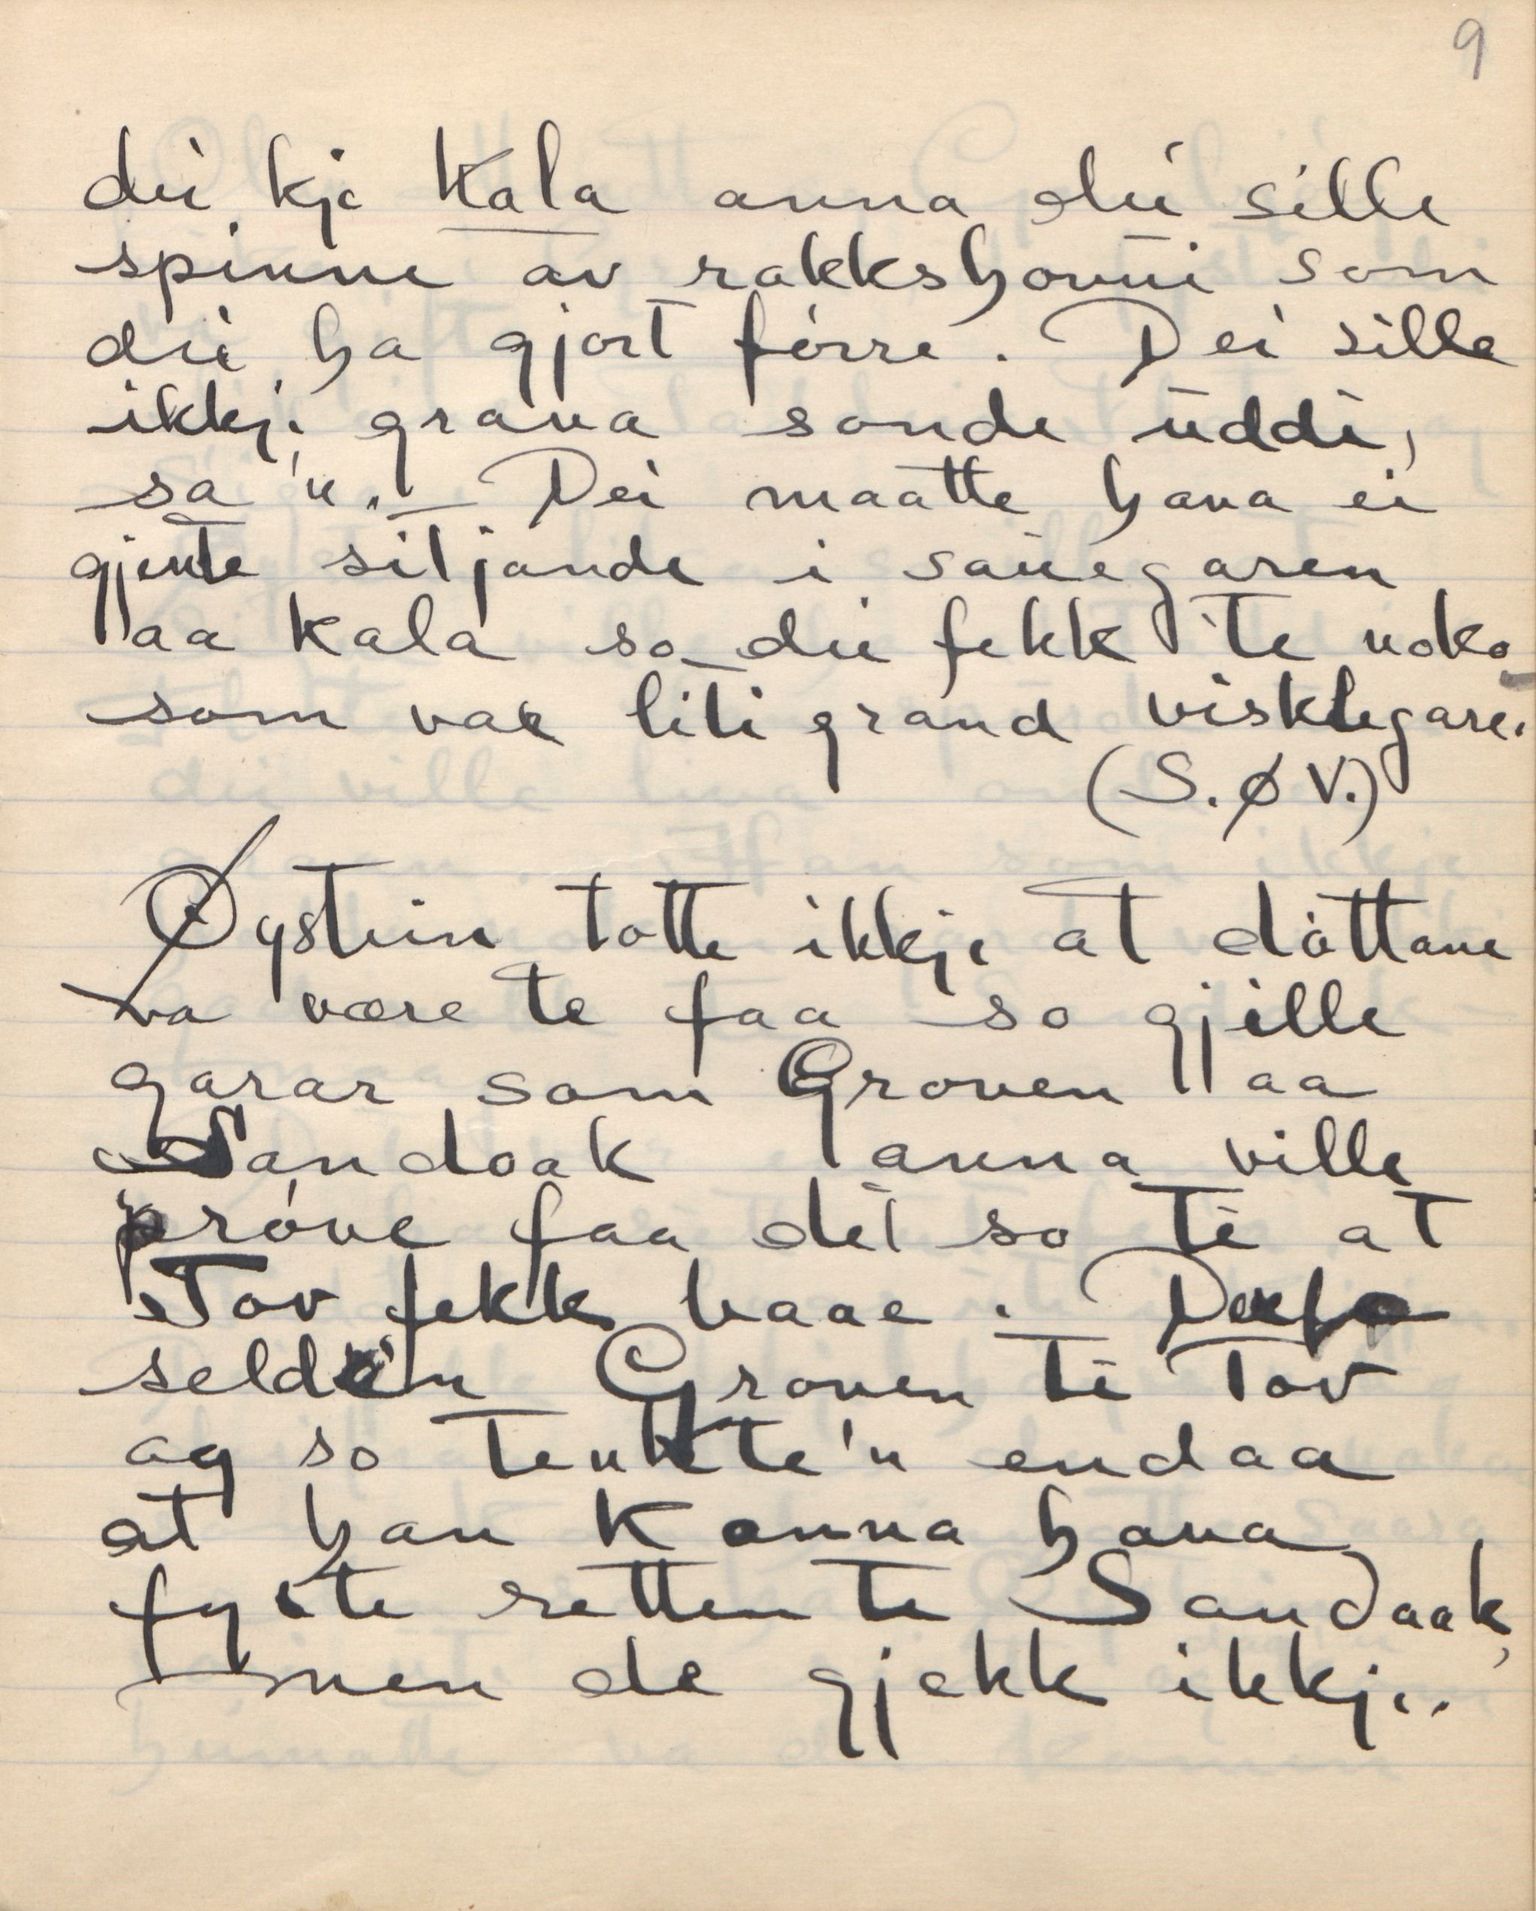 9
dei kje kala anna dei sille
spinne av rakkshovui som
dei ha gjort fórre. Dei sille
ikkje grava sonde uddi,
sa 'n. – Dei maatte hava ei
gjente sitjande i sauegaren
aa kala so dei fekk te noko
som var liti grand visklegare.
(S. Ø V.)
Øystein totte ikkje at dòttane
va være te faa so gjille
garar som Groven aa
Sandaak anna ville
próve faa det so te at
Tov fekk baae. – Derfo
selde'n Groven ti Tov
ag so tenkte'n endaa
at han konna hava
fyste retten te Sandaak,
men de gjekk ikkje.